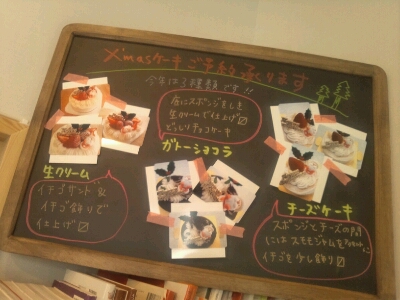 X'masケーキご予約承ります
今年は3種類です!!
生クリーム
イチゴサンド &
イチゴ飾りで
仕上げ
ガトーショコラ
間にスポンジなしを
生クリームで仕上げ
どっしりチョコケーキ
チーズケーキ
スポンジとチーズの間
にはスモモジャムを
イチゴを少し飾り